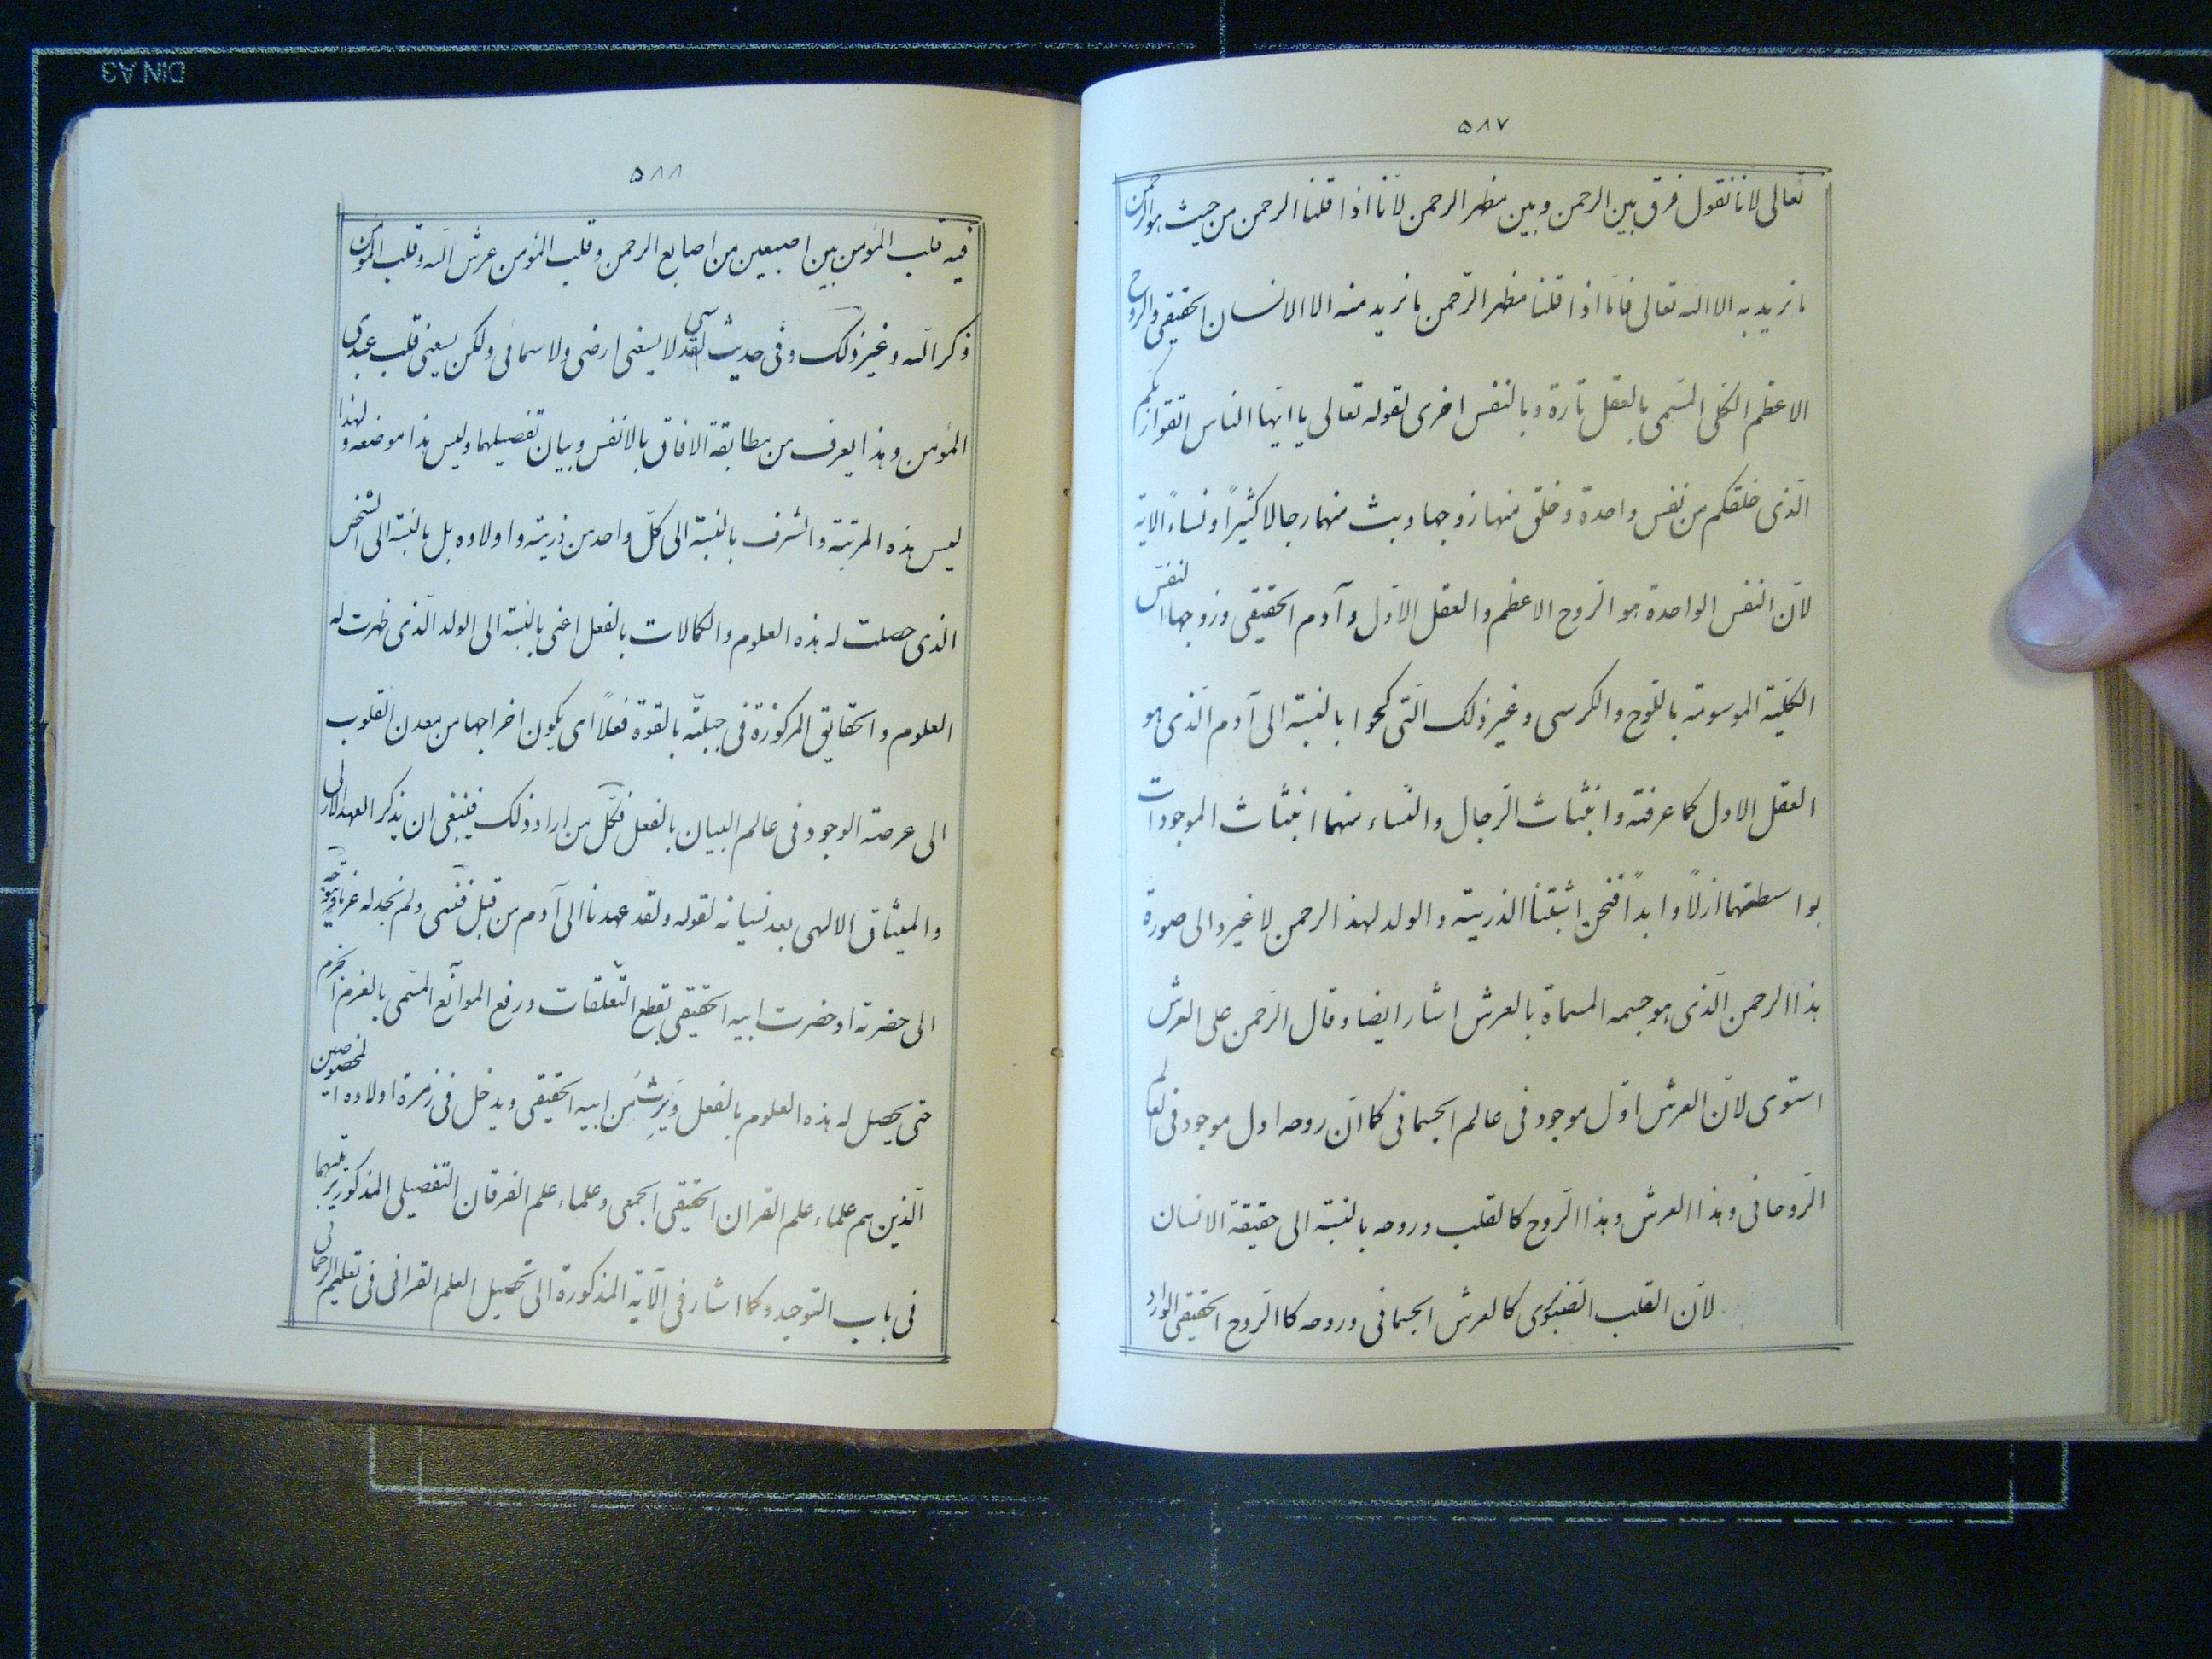 ۵۸۷
تعالى لانا نقول فرق بين الرحمن وبين مظهر الرحمن لأنا اذا قلنا الرحمن من حيث هو الرحمن
ما نريد به الا الله تعالى فانا اذا قلنا مظهر الرحمن ما نريد منه الا الانسان الحقيقى والروح
الاعظم الكلى المسمى بالعقل تارة وبالنفس اخرى لقوله تعالى يا ايها الناس اتقوا ربكم
الذى خلقكم من نفس واحدة وخلق منها زوجها وبث منهما رجالا كثيراً ونساءً الاية
لأن النفس الواحدة هو الروح الاعظم والعقل الاول وآدم الحقيقى وزوجها النفس
الكلية الموسومة باللوح والكرسى وغير ذلك التى كحوا بالنسبة الى آدم الذى هو
العقل الاول كما عرفته وانبثاث الرجال والنساء منهما انبثاث الموجودات
بواسطتهما ازلاً وابداً فنحن اثبتنا الذرية والولد لهذ الرحمن لا غير والى صورة
هذا الرحمن الذى هو جسمه المسماة بالعرش اشار ايضا وقال الرحمن على العرش
استوى لأن العرش اول موجود فى عالم الجسمانى كما ان روحه اول موجود فى العالم
الروحانى وهذا العرش وهذا الروح كالقلب وروحه بالنسبة الى حقيقة الانسان
لأن القلب الصنوبرى كالعرش الجسمانى وروحه كالروح الحقيقى الوارد
۵۸۸
فيه قلب المؤمن بين اصبعين من اصابع الرحمن وقلب المؤمن عرش الله وقلب المؤمن
ذكر الله وغير ذلك وفى حديث القدسى لا يسعنى ارضى ولا سمائى ولكن يسعنى قلب عبدى
المؤمن وهذا يعرف من مطابقة الافاق بالانفس وبيان تفصيلهما وليس هذا موضعه ولهذا
ليس هذه المرتبة والشرف بالنسبة الى كل واحد من ذريته واولاده بل بالنسبة الى الشخص
الذى حصلت له هذه العلوم والكمالات بالفعل اعنى بالنسبة الى الولد الذى ظهرت له
العلوم والحقايق المركوزة فى جبلته بالقوة فعلاً اى يكون اخراجها من معدن القلوب
الى عرصة الوجود فى عالم البيان بالفعل فكل من اراد ذلك فينبغى ان يذكر العهد الازلى
والميثاق الالهى بعد نسيانه لقوله ولقد عهدنا الى آدم من قبل فنسى ولم نجد له عزما ويتوجه
الى حضرته او حضرت ابيه الحقيقى بقطع التعلقات ورفع الموانع المسمى بالعزم الجزم
حتى يحصل له هذه العلوم بالفعل ويرث من ابيه الحقيقى ويدخل فى زمرة اولاده المخصوصين
الذين هم علماء علم القران الحقيقى الجمعى وعلماء علم الفرقان التفصيلى المذكور
فى باب التوحيد وكما اشار فى الآية المذكورة الى تحصيل العلم القرانى فى تعليم الرحمانى